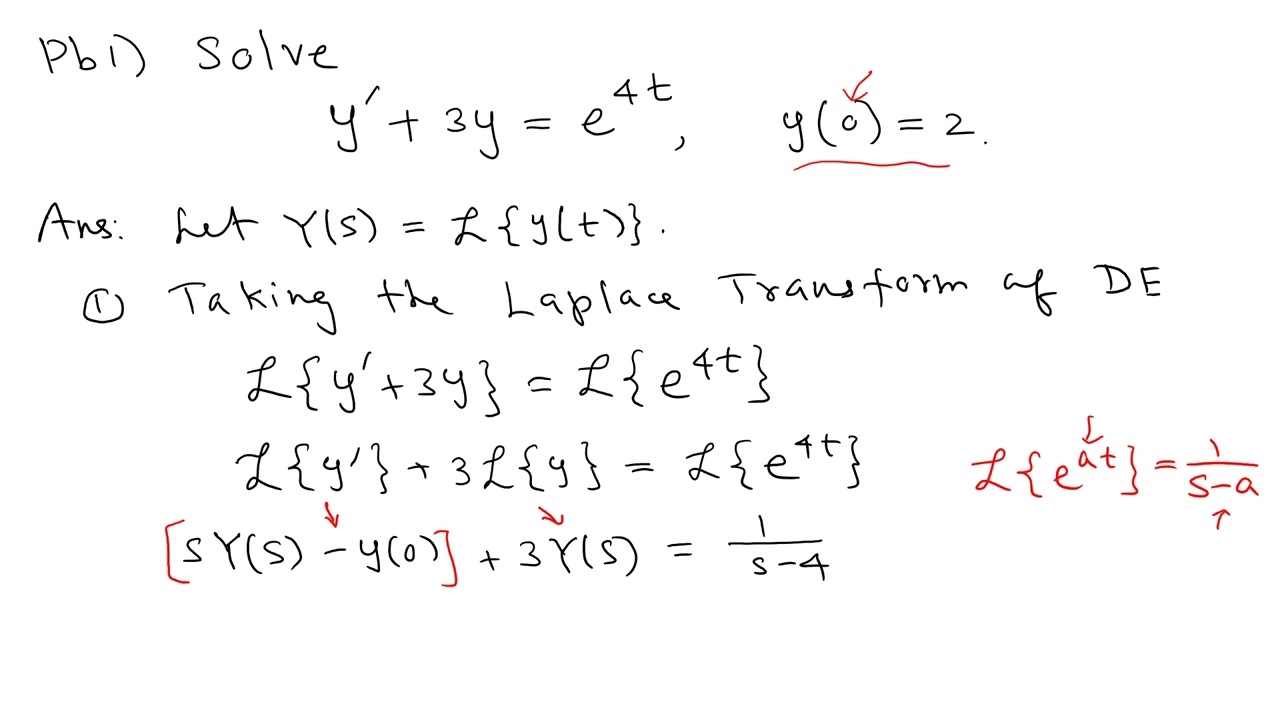 Pb1) Solve
y′ + 3y = e^{4t}, y(0) = 2.
Ans: Let Y(s) = ℒ{y(t)}.
① Taking the Laplace Transform of DE
ℒ{y′+3y} = ℒ{e^{4t}}
ℒ{y′} + 3ℒ{y} = ℒ{e^{4t}} ℒ{e^{at}} = 1/(s-a)
[sY(s) - y(0)] + 3Y(s) = 1/(s-4)